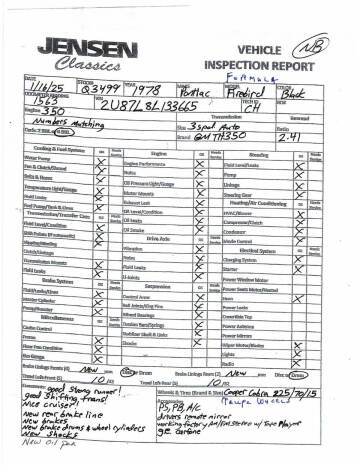 JENSEN
Classics
VEHICLE NB
INSPECTION REPORT
FORMULA
DATE 1/16/25 STOCK# Q3499 YEAR 1978 MAKE Pontiac MODEL Firebird COLOR Black
ODOMETER READING 1563 2U87L8L133665 TECH ID CH
Engine 350 Transmission
Numbers Matching Size 3 spd Auto Ratio
Brand GM TH350 2.41
Cooling & Fuel System OK Needs Service Engine OK Needs Service Steering OK Needs Service
Water Pump Engine Performance Fluid Level/Leaks
Fan & Clutch/Shroud Noise Pump
Belts & Hoses Oil Pressure Light/Gauge Linkage
Temperature Light/Gauge Motor Mounts Steering Gear
Fluid Leaks Exhaust Leak Heating/Air Conditioning
Fuel Pump/Tank & Lines Oil Level/Condition HVAC/Blower
Transmission/Transfer Case Oil Leaks Compressor/Clutch
Fluid Level/Condition Oil Leaks Condenser
Drive Axle Mode Control
Vibration Electrical System
Clutch/Linkage Noise Charging System
Transmission Mounts Fluid Leaks Starter
Fluid Leaks U-Joints Power Window Motor
Brake System Suspension Power Seats Motor/Heated
Fluid/Leaks/Lines Control Arms Horn
Master Cylinder Ball Joints/King Pins Power Locks
Pump/Booster Wheel Bearings Convertible Top
Miscellaneous Torsion Bars/Springs Power Antenna
Cruise Control Stabilizer Shaft & Links Power Mirrors
Frame Shocks Wiper Motor/Blades
Floor Pan Condition Lights
Radio
Brake Linings Front (%) New Disc or Drum Brake Linings Rear (%) New Disc or Drum
Tread Left-Front (%) 10/32 Tread Left-Rear (%) 10/32
Comments: good strong runner! Wheels & Tires (Brand & Size) Cooper Cobra 225/70/15
good shifting trans! Accessories
Nice cruiser! PS, PB, A/C
New rear brake line drivers remote mirror
New Brakes working factory AM/FM Stereo w/ Tape Player
New brake drums & wheel cylinders
New shocks
New oil pan